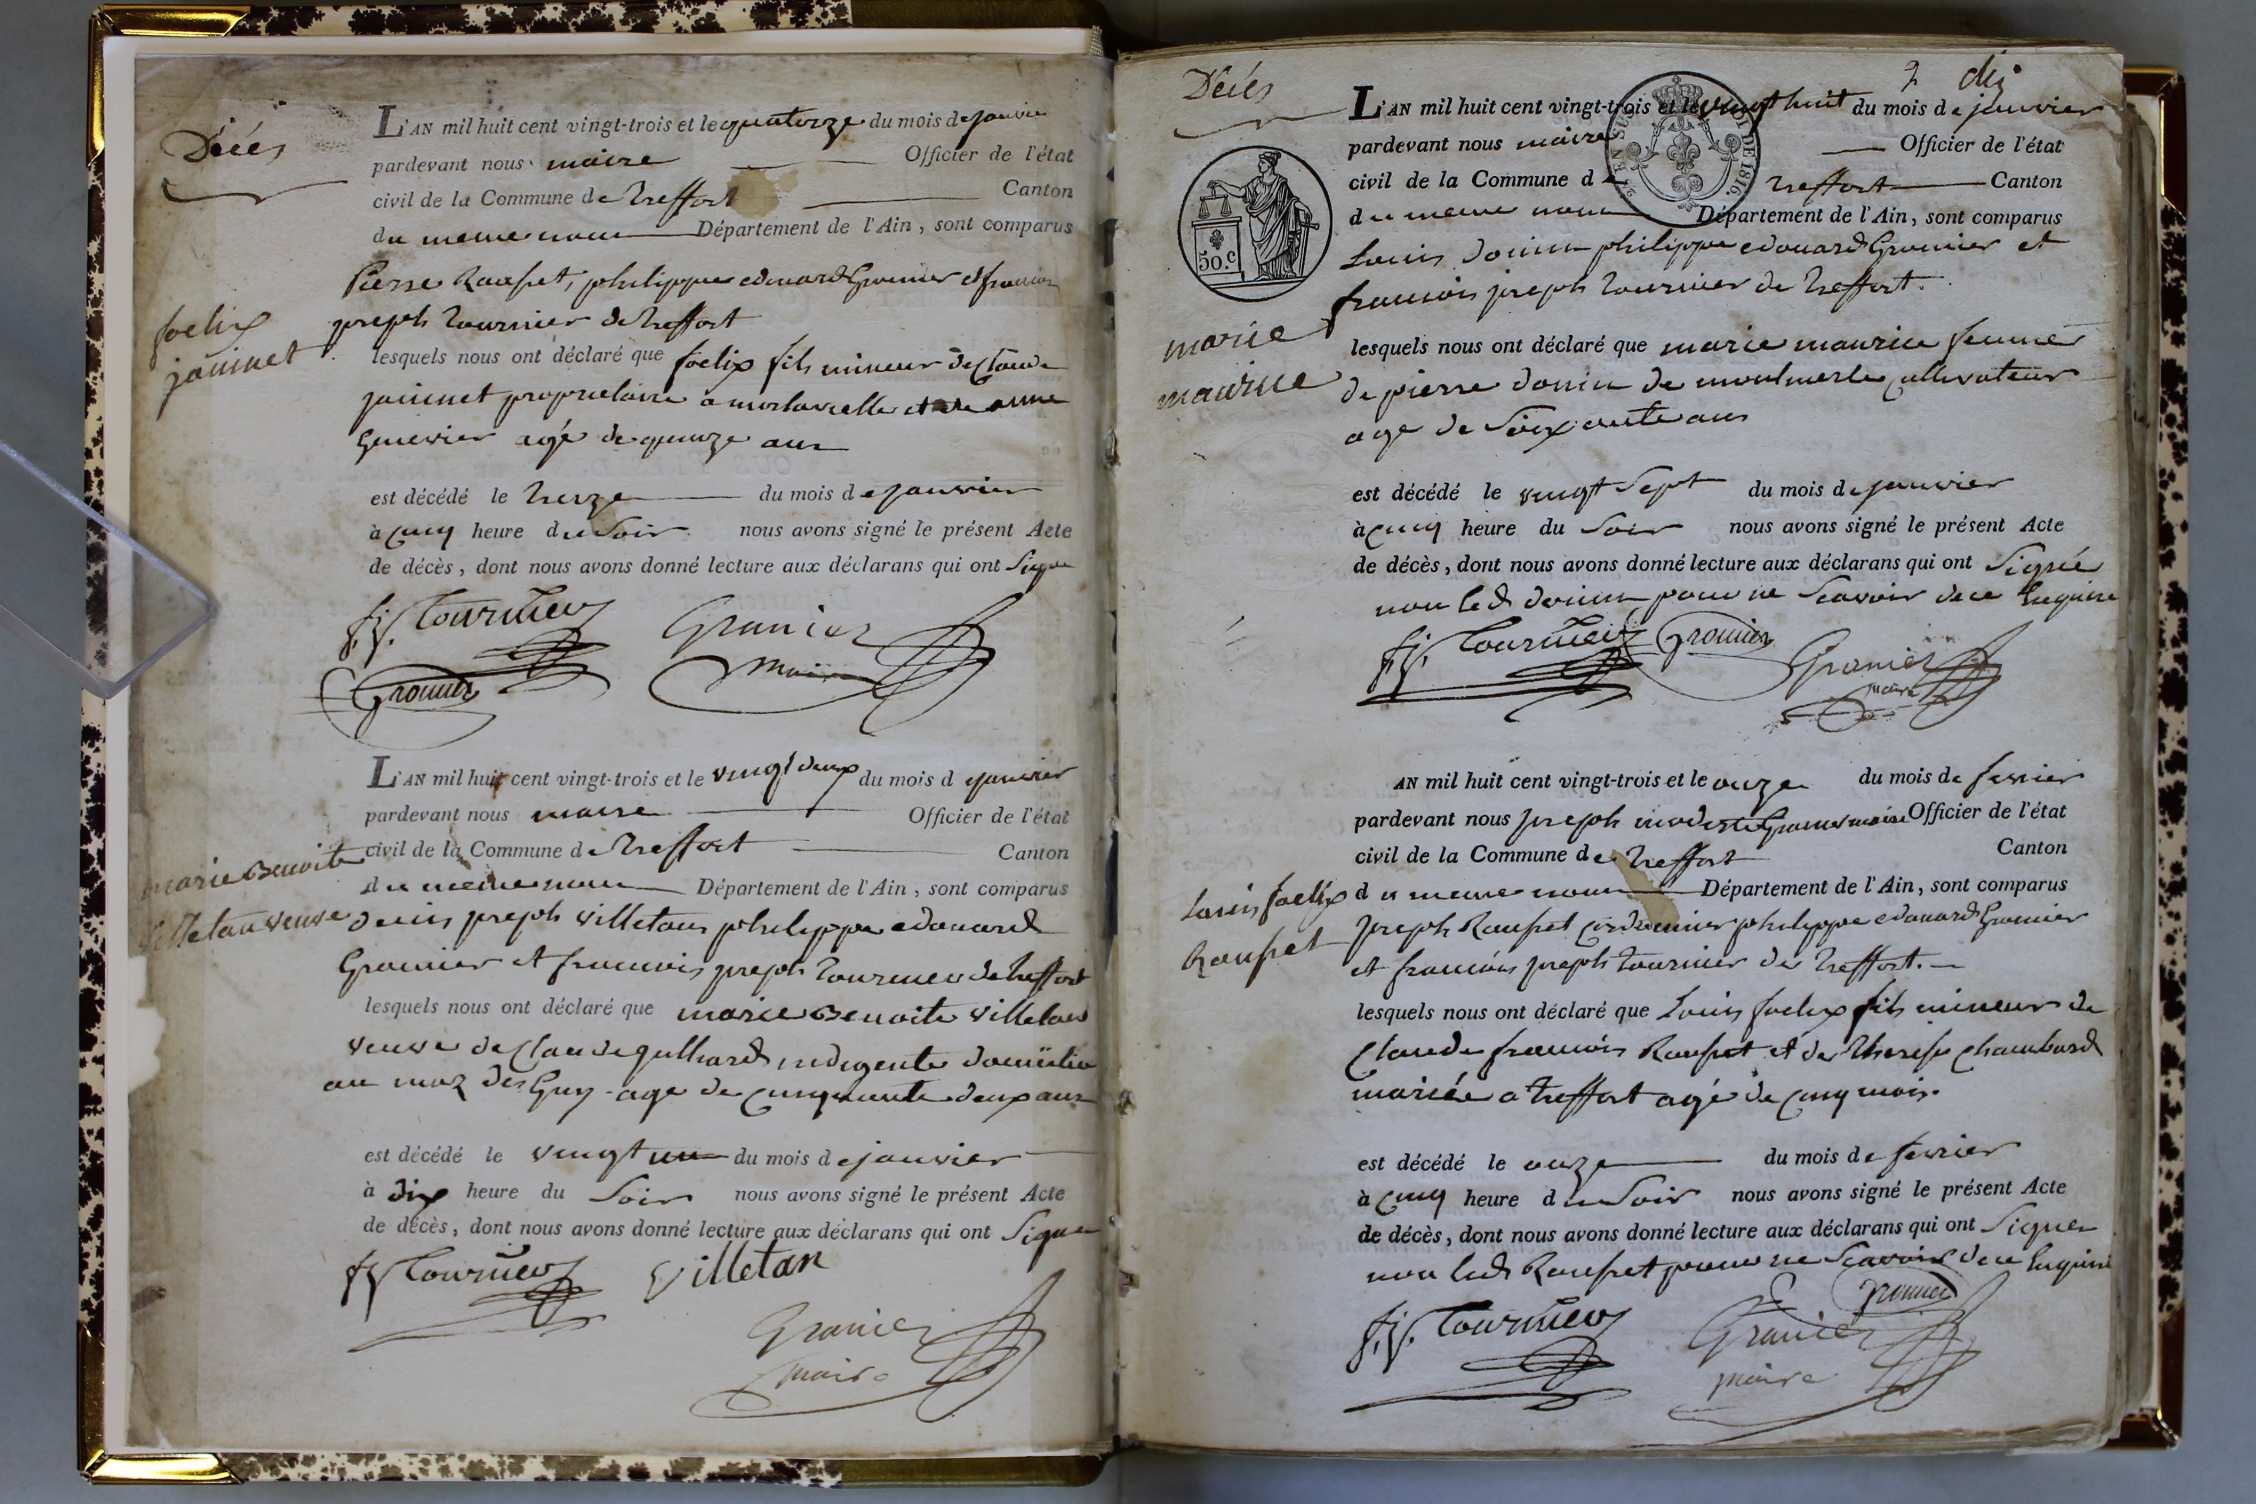 Décés
L'AN mil huit cent vingt-trois et le quatorze du mois de janvier
pardevant nous maire Officier de l'état
civil de la Commune de treffort Canton
du meme nom Département de l'Ain, sont comparus
Pierre Raufset, philippe edouard Gromier et francois
joseph tournier de treffort
foelix
janinet
lesquels nous ont déclaré que foelix fils mineur de Claude
janinet proprietaire a et de anne
Genevier agé de quinze ans
est décédé le treize du mois de janvier
à cinq heure du Soir nous avons signé le présent Acte
de décès, dont nous avons donné lecture aux déclarans qui ont Signé
f.j. Tournier Granier
Gromier Maire
L'AN mil huit cent vingt-trois et le vingt deux du mois d janvier
pardevant nous maire Officier de l'état
civil de la Commune de treffort Canton
du meme nom Département de l'Ain, sont comparus
marie Benoite
Villetan veuve
denis joseph Villetan philippe edouard
Gromier et francois joseph tournier de treffort
lesquels nous ont déclaré que marie Benoite Villetan
veuve de Claude indigente domicilié
au maz des Guy agé de cinquante deux ans
est décédé le vingt un du mois de janvier
à dix heure du Soir nous avons signé le présent Acte
de décès, dont nous avons donné lecture aux déclarans qui ont Signé
fj Tournier Villetan
Granier
maire
2 dix
Décés
L'AN mil huit cent vingt-trois et le vingt huit du mois de janvier
pardevant nous maire Officier de l'état
civil de la Commune de treffort Canton
du meme nom Département de l'Ain, sont comparus
50.c
LOI DE 1816.
Louis Donin philippe edouard Gromier et
francois joseph tournier de treffort.
marie
maurice
lesquels nous ont déclaré que marie maurice femme
de pierre donin de montmerle cultivateur
agé de Soixante ans
est décédé le vingt Sept du mois de janvier
à cinq heure du Soir nous avons signé le présent Acte
de décès, dont nous avons donné lecture aux déclarans qui ont Signé
non led. donin pour ne Scavoir de ce Enquis
f.j. Tournier Gromier
Granier
maire
AN mil huit cent vingt-trois et le onze du mois de fevrier
pardevant nous joseph modeste Granier maire Officier de l'état
civil de la Commune de treffort Canton
du meme nom Département de l'Ain, sont comparus
Louis foelix
Raufset
joseph Raufset cordonnier philippe edouard Gromier
et francois joseph tournier de treffort.
lesquels nous ont déclaré que Louis foelix fils mineur de
Claude francois Raufset et de therese chambard
mariée a treffort agé de cinq mois.
est décédé le onze du mois de fevrier
à cinq heure du Soir nous avons signé le présent Acte
de décès, dont nous avons donné lecture aux déclarans qui ont Signer
non led. Raufset pour ne Scavoir de ce Enquis
f.j. Tournier Gromier
Granier
maire